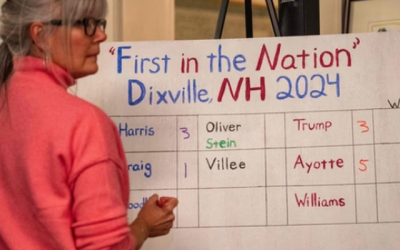 "First in the Nation"
Dixville, NH 2024
Harris 3 Oliver Trump 3
Stein
raig 1 Villee Ayotte 5
Williams